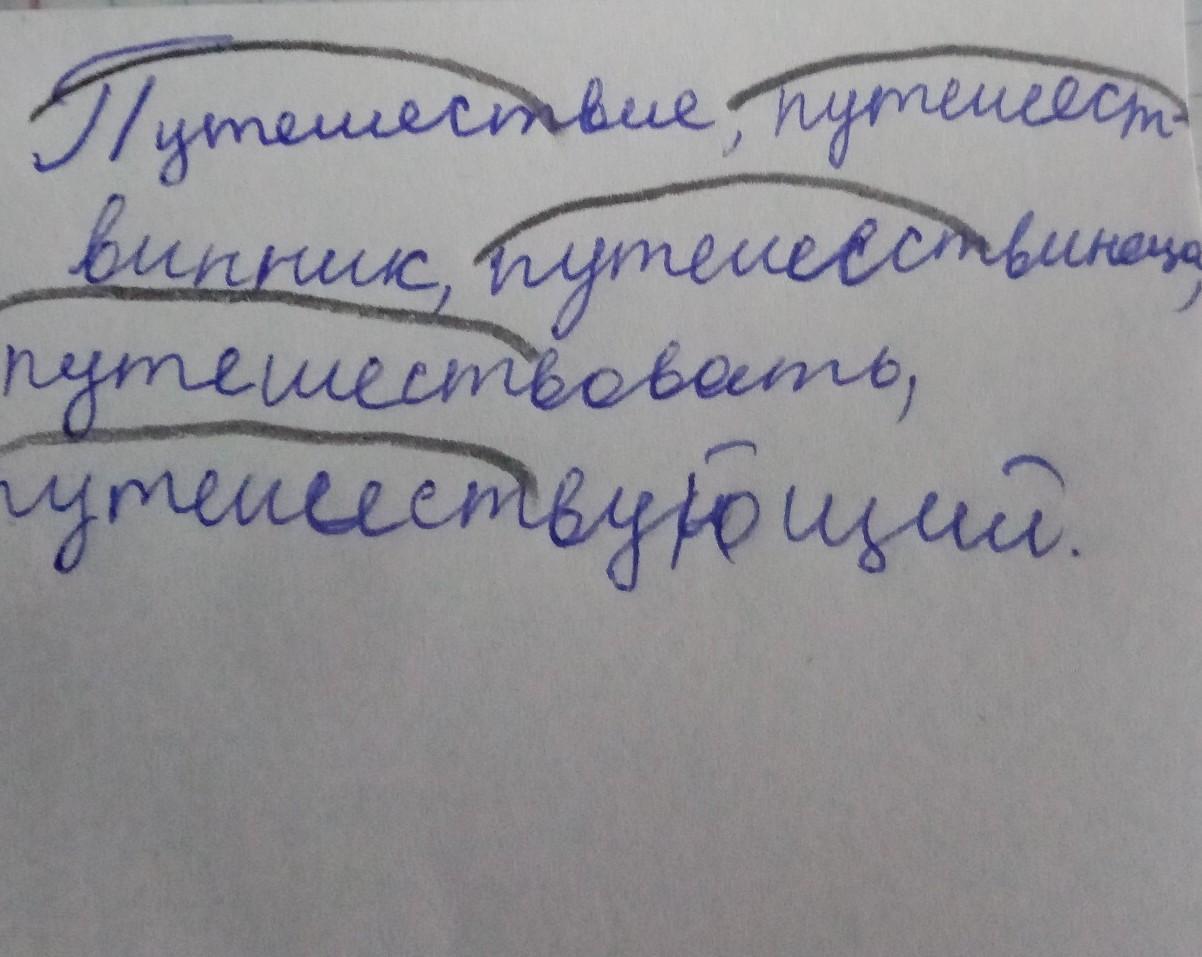 Путешествие, путешест-
винник, путешествинеца,
путешествовать,
путешествующий.